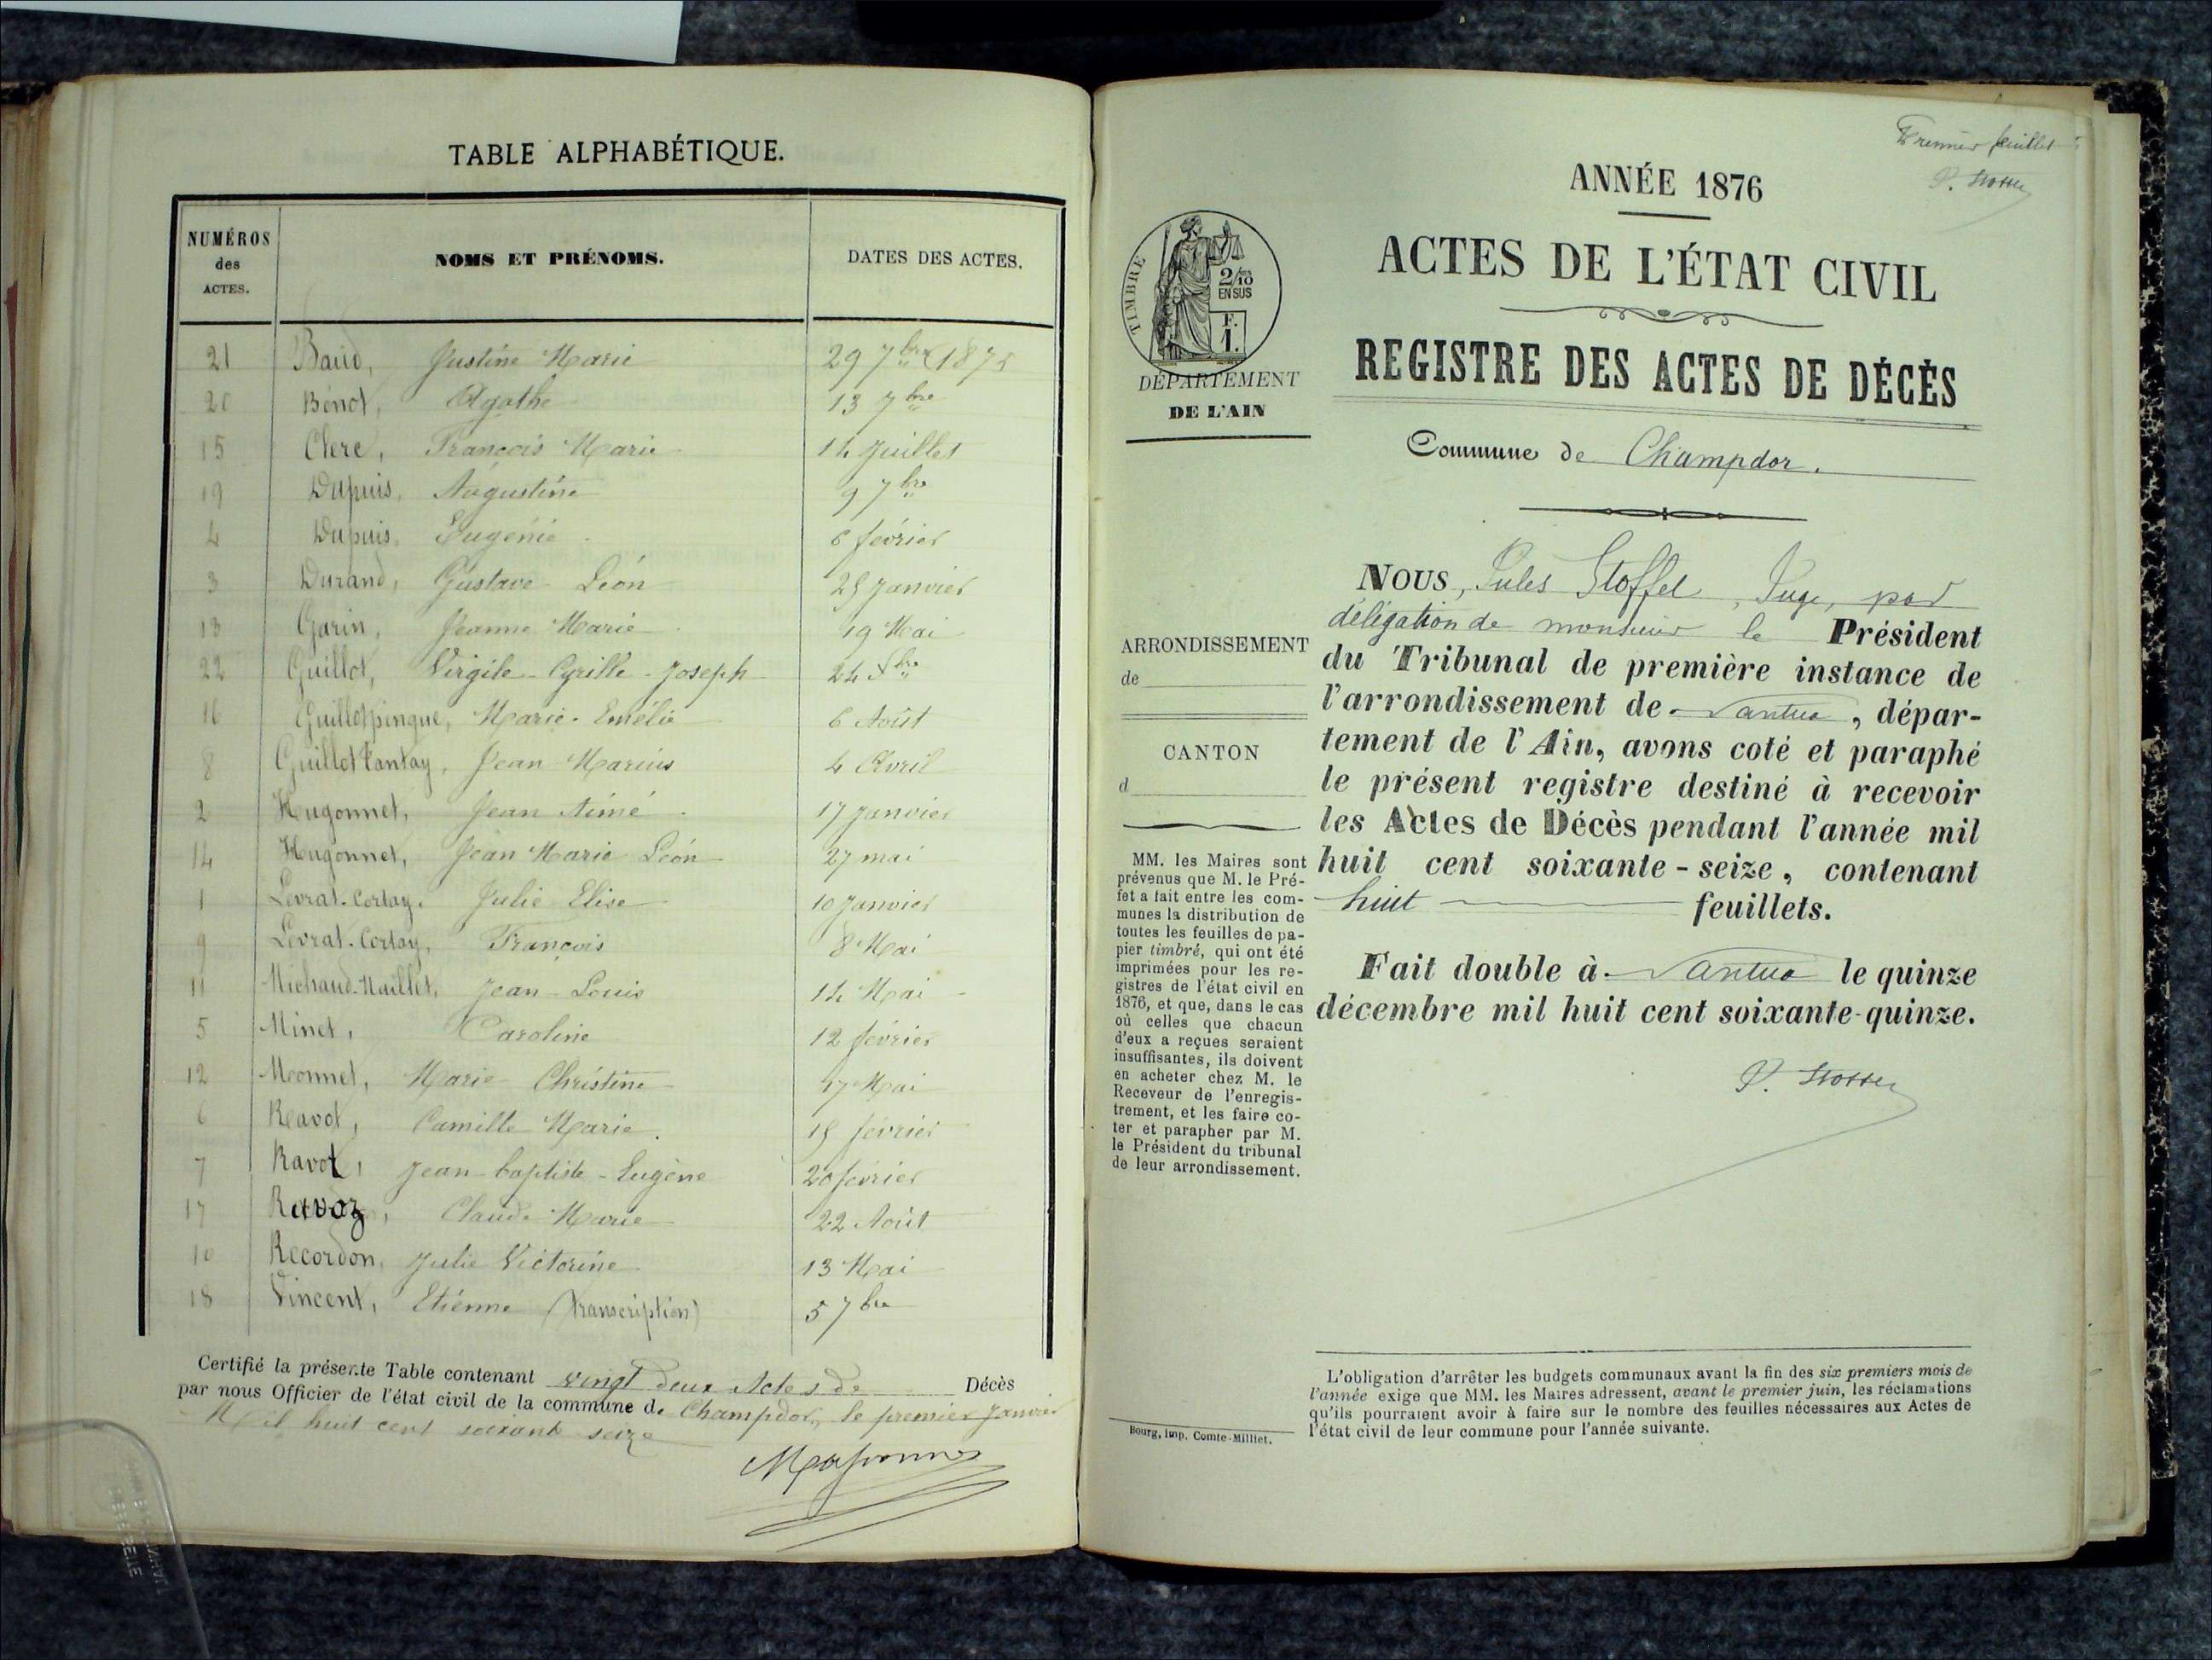 TABLE ALPHABÉTIQUE.
NUMÉROS des ACTES. NOMS ET PRÉNOMS. DATES DES ACTES.
21 Baud, Justine Marie 29 7bre 1875
20 Bénot, Agathe 13 7bre
15 Clerc, François Marie 14 Juillet
19 Dupuis, Augustine 9 7bre
4 Dupuis, Eugénie 6 février
3 Durand, Gustave Léon 25 Janvier
13 Garin, Jeanne Marie 19 Mai
22 Guillot, Virgile-Cyrille-Joseph 24
16 Guillotpingue, Marie-Emélie 6 Août
8 Guillot Tantay, Jean Marius 4 Avril
2 Hugonnet, Jean Aimé 17 Janvier
14 Hugonnet, Jean Marie Léon 27 mai
1 Levrat-Cortay, Julie Elise 10 Janvier
9 Levrat-Cortay, François 8 Mai
11 Michaud-Maillet, Jean-Louis 14 Mai
5 Minet, Caroline 12 février
12 Monnet, Marie Christine 17 Mai
6 Ravot, Camille Marie 15 février
7 Ravot, Jean-baptiste-Eugène 20 février
17 Ravoz, Claude Marie 22 Août
10 Recordon, Julie Victorine 13 Mai
18 Vincent, Etienne (transcription) 5 7bre
Certifié la présente Table contenant vingt deux Actes de Décès
par nous Officier de l'état civil de la commune de Champdor, le premier Janvier
Mil huit cent soixante seize
Premier feuillet
ANNÉE 1876
ACTES DE L'ÉTAT CIVIL
REGISTRE DES ACTES DE DÉCÈS
TIMBRE
2/10
EN SUS
F.
1.
DÉPARTEMENT
DE L'AIN
Commune de Champdor.
ARRONDISSEMENT
de
CANTON
d
MM. les Maires sont
prévenus que M. le Pré-
fet a fait entre les com-
munes la distribution de
toutes les feuilles de pa-
pier timbré, qui ont été
imprimées pour les re-
gistres de l'état civil en
1876, et que, dans le cas
où celles que chacun
d'eux a reçues seraient
insuffisantes, ils doivent
en acheter chez M. le
Receveur de l'enregis-
trement, et les faire co-
ter et parapher par M.
le Président du tribunal
de leur arrondissement.
Bourg, imp. Comte-Milliet.
NOUS, Jules Stoffel, Juge, par
délégation de monsieur le Président
du Tribunal de première instance de
l'arrondissement de Nantua, dépar-
tement de l'Ain, avons coté et paraphé
le présent registre destiné à recevoir
les Actes de Décès pendant l'année mil
huit cent soixante-seize, contenant
huit feuillets.
Fait double à Nantua le quinze
décembre mil huit cent soixante-quinze.
L'obligation d'arrêter les budgets communaux avant la fin des six premiers mois de
l'année exige que MM. les Maires adressent, avant le premier juin, les réclamations
qu'ils pourraient avoir à faire sur le nombre des feuilles nécessaires aux Actes de
l'état civil de leur commune pour l'année suivante.